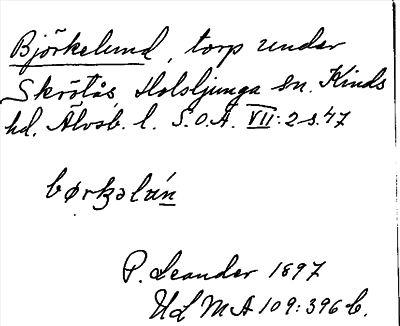 Björkelund, torp under
Skrötås, Holsljunga sn. Kinds
hd. Älvsb. l. S.O.A. VII: 2 s. 47
børʒalún
P. Leander 1897
ULMA 109:396 b.